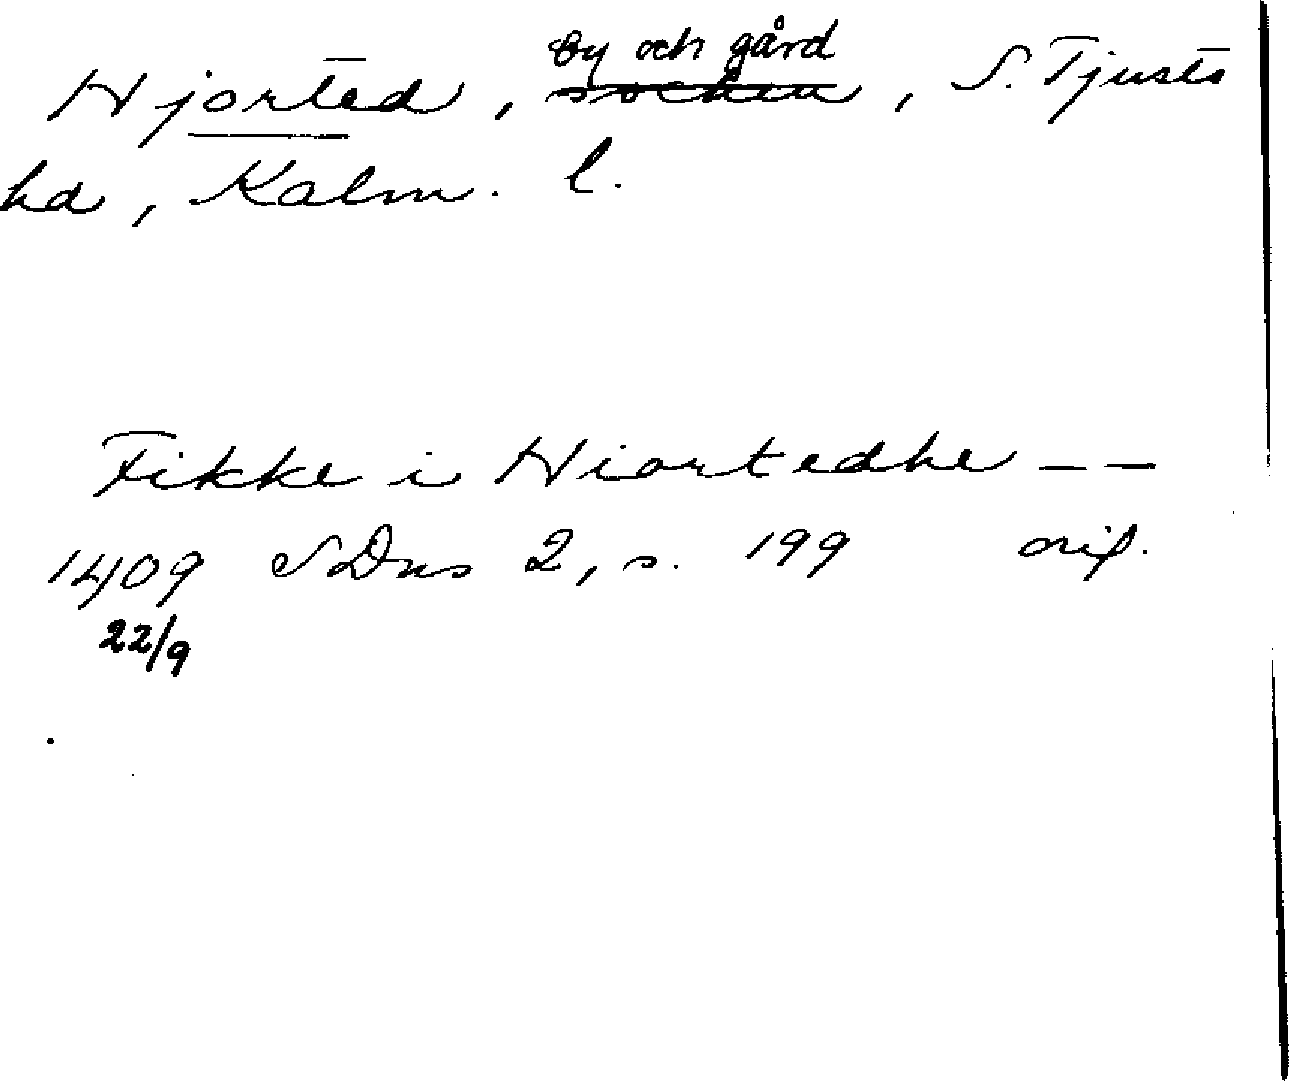 by och gård
Hjorted, socken, S. Tjusts
hd, Kalm. l.
Fikke i Hiortedhe --
1409 SDns 2, s. 199 orig.
22/9